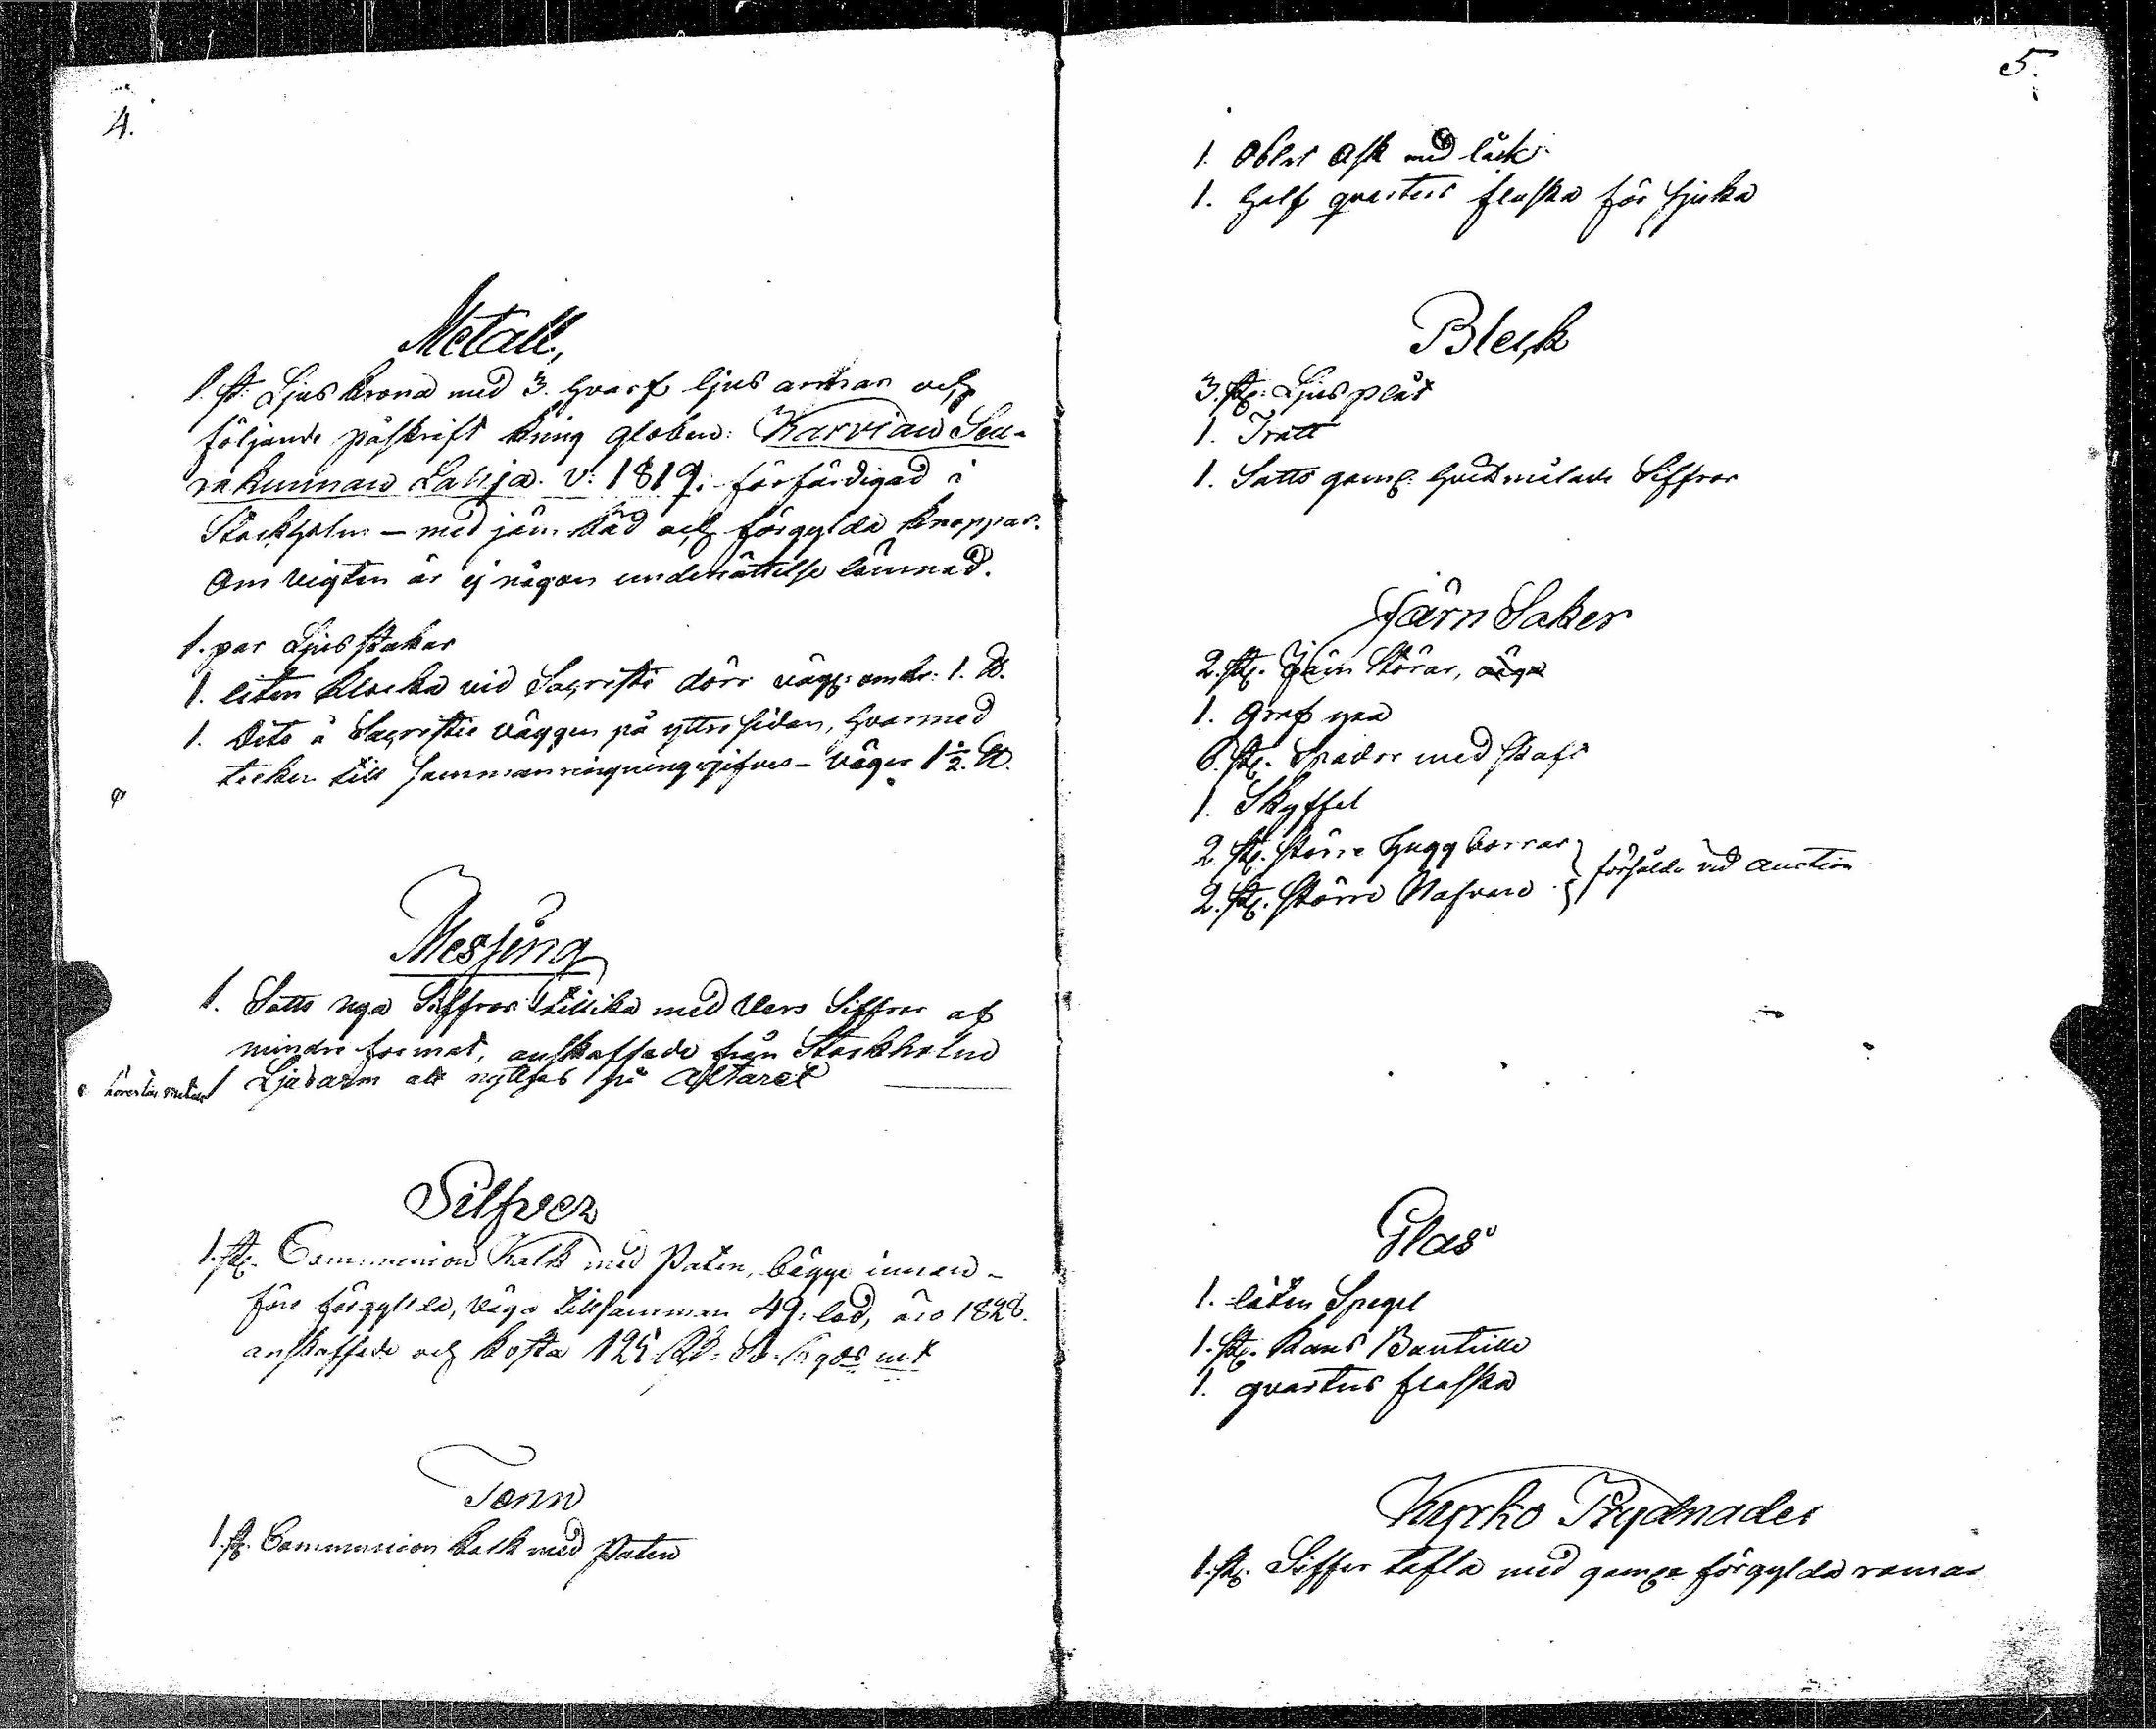 4.
Metall,
1. st: Ljus krona med 3. hvarf ljus armar och
följande påskrift kring globen: Karvian Seu-
rakunnan Lahja. v: 1819. förfärdigad i
Stockholm – med järn och förgylda knoppar.
Om vigten är ej någon underrättelse lämnad.
1. par Ljusstakar
1. liten klocka vid Sacristie dörr väg: omkr: 1. ℔.
1. Dito å Sacristie väggen på yttre sidan, hvarmed
tecken till sammanringning gifves – väger 1½. ℔.
Messing
1. Satts nya Siffror tillika med Vers Siffror af
mindre format, anskaffade från Stockholm
1 Ljusarm att nyttjas på Altaret
Silfver
1. st. Communion Kalk med Paten, bägge innan-
före förgyllda, väga tillsamman 49. lod, äro 1828.
anskaffade och kosta 125 Rd:
Tenn
1. st. Communion kalk med Paten
5.
1. Oblat Ask med låck
1. half qvarters flaska för sjuka
Bleck
3. st. Ljus plåt
1. Tratt
1. Satts gaml. hvitmålade Siffror
Järn Saker
2. st. Järn Störar,
1. Graf
6. st. Spador med skaft
1. Skyffel
2. st. större Hugg borrar
2. st. större Nafvare } försålda vid auction.
Glas
1. liten Spegel
1. st. Kans Bouteille
1. qvarters flaska
Kyrko Prydnader
1. st. Siffer tafla med gamla förgylda ramar